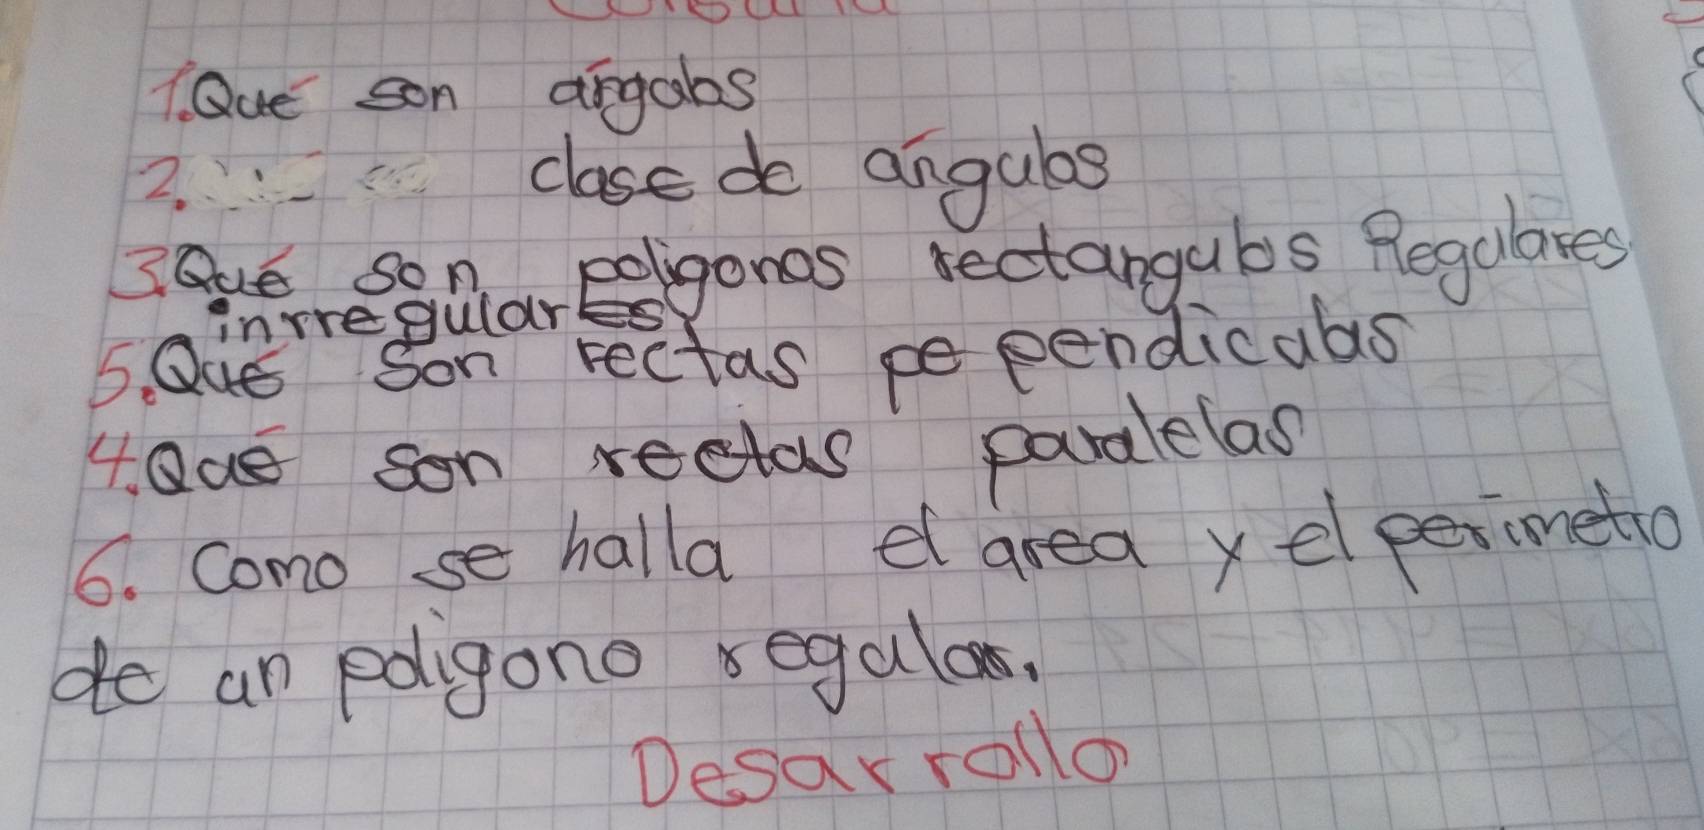 1. Qué son ángulos
2. clase de ángulos
3. Qué son poligonos rectangulos Regulares
inrregulares
5. Qué son rectas pependiculas
4. Qué son rectas paralelas
6. Como se halla el area y el perimetro
de un poligono regular.
Desarrollo